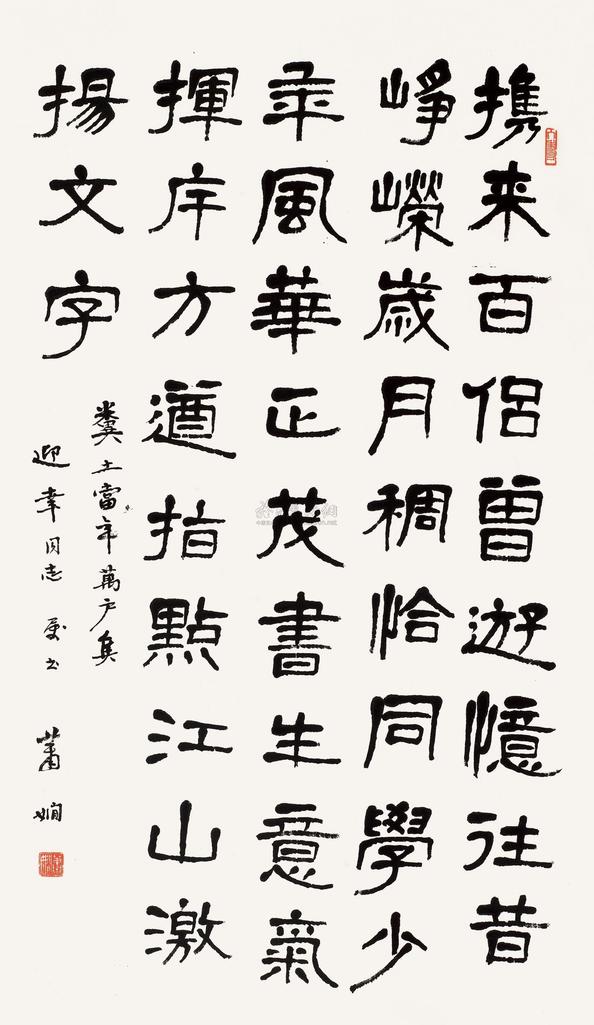 携来百侶曾遊憶往昔
崢嶸歲月稠恰同學少
年風華正茂書生意氣
揮斥方遒指點江山激
揚文字
糞土當年萬户矦
迎幸同志属书
蕭嫻